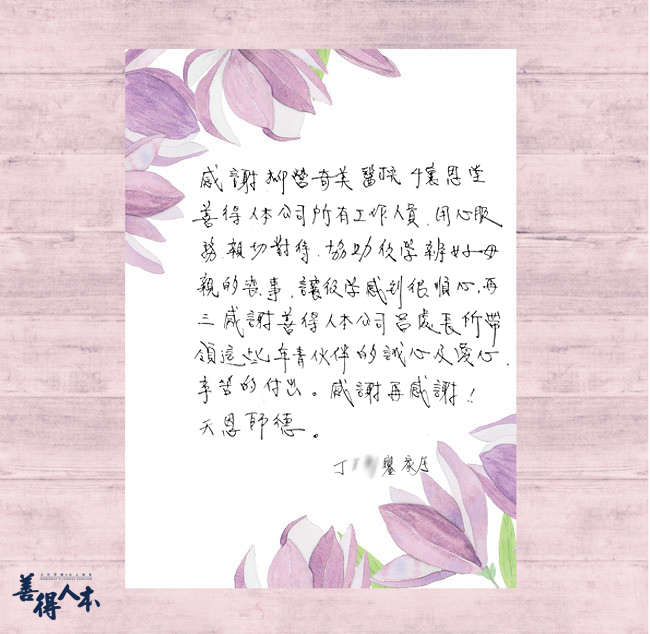 感謝柳營奇美醫院 懷恩堂
善得人本公司所有工作人員,用心服
務,親切對待,協助後學辦好母
親的喪事,讓後學感到很順心,再
三感謝善得人本公司呂處長所帶
領這些年青伙伴的誠心及愛心,
辛苦的付出。感謝再感謝!
天恩師德。
丁 鑾家屬
善得人本